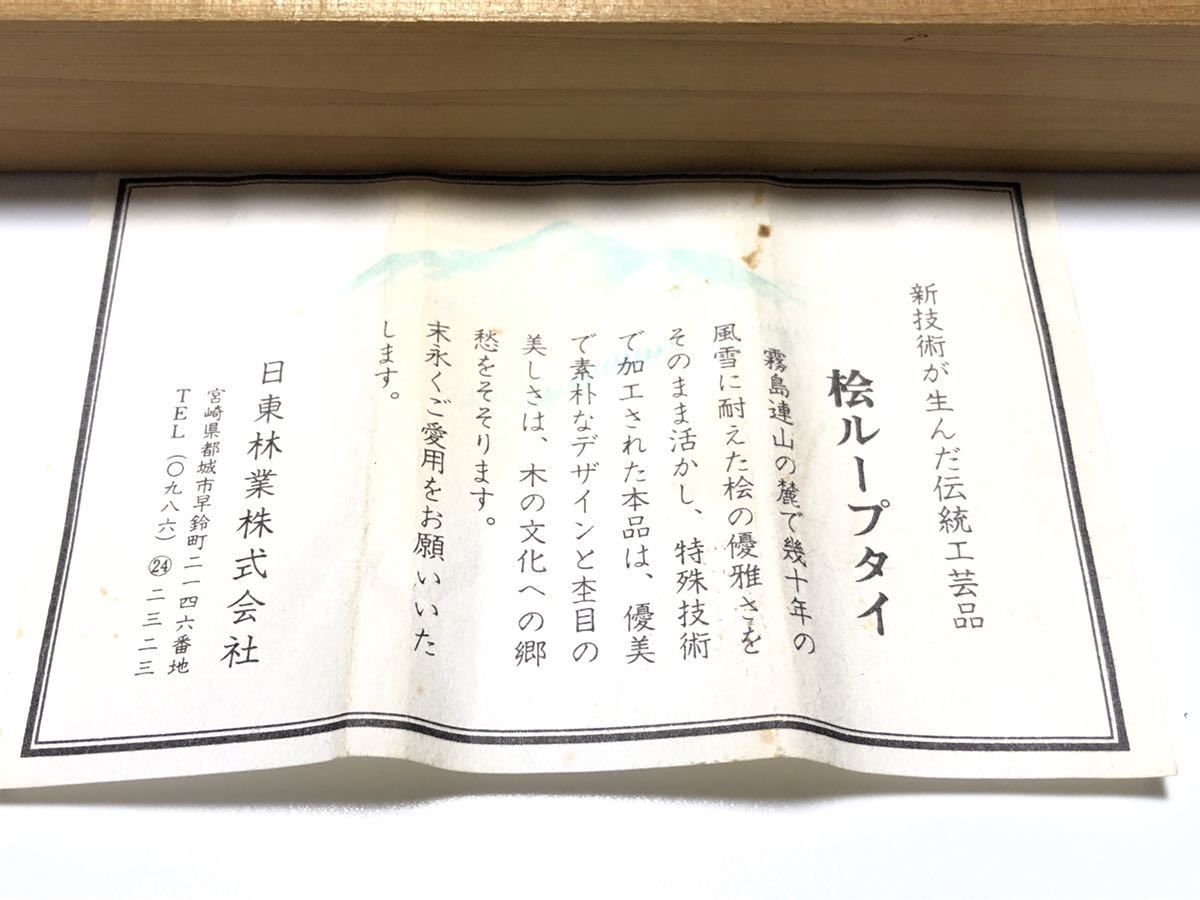 新技術が生んだ伝統工芸品
桧ループタイ
霧島連山の麓で幾十年の
風雪に耐えた桧の優雅さを
そのまま活かし、特殊技術
で加工された本品は、優美
で素朴なデザインと杢目の
美しさは、木の文化への郷
愁をそそります。
末永くご愛用をお願いいた
します。
日東林業株式会社
宮崎県都城市早鈴町二一四六番地
TEL(〇九八六)㉔二三二三